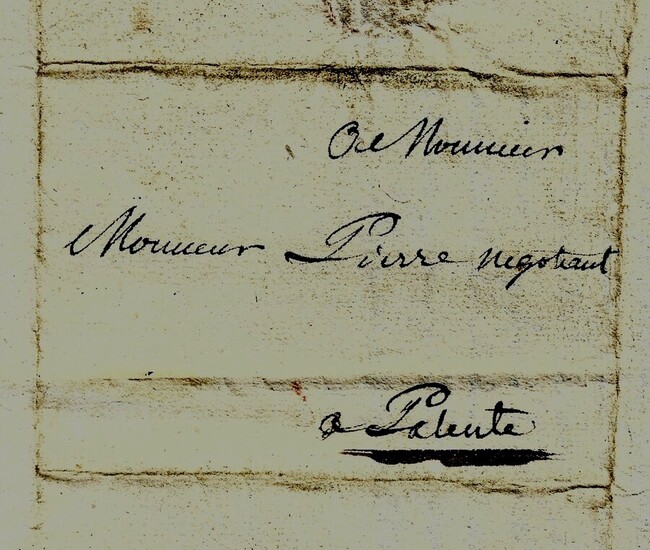 A Monsieur
Monsieur Pierre negotiant
a Palente